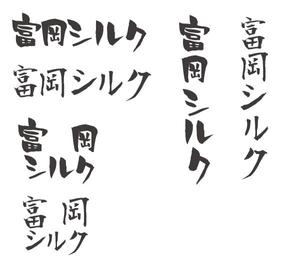 富岡シルク
富岡シルク
富岡
シルク
富岡
シルク
富岡シルク
富岡シルク